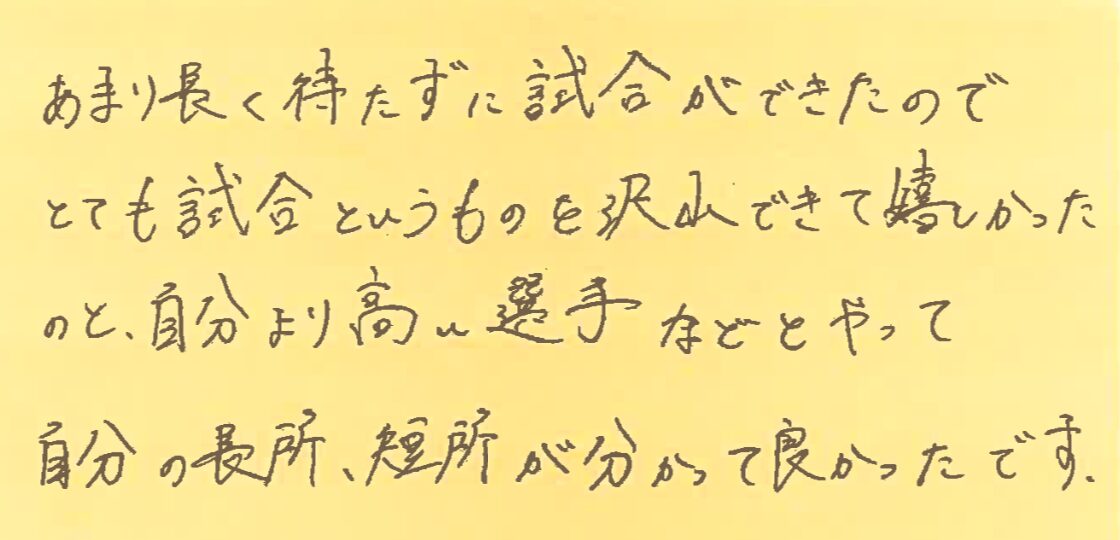 あまり長く待たずに試合ができたので
とても試合というものを沢山できて嬉しかった
のと、自分より高い選手などとやって
自分の長所、短所が分かって良かったです.